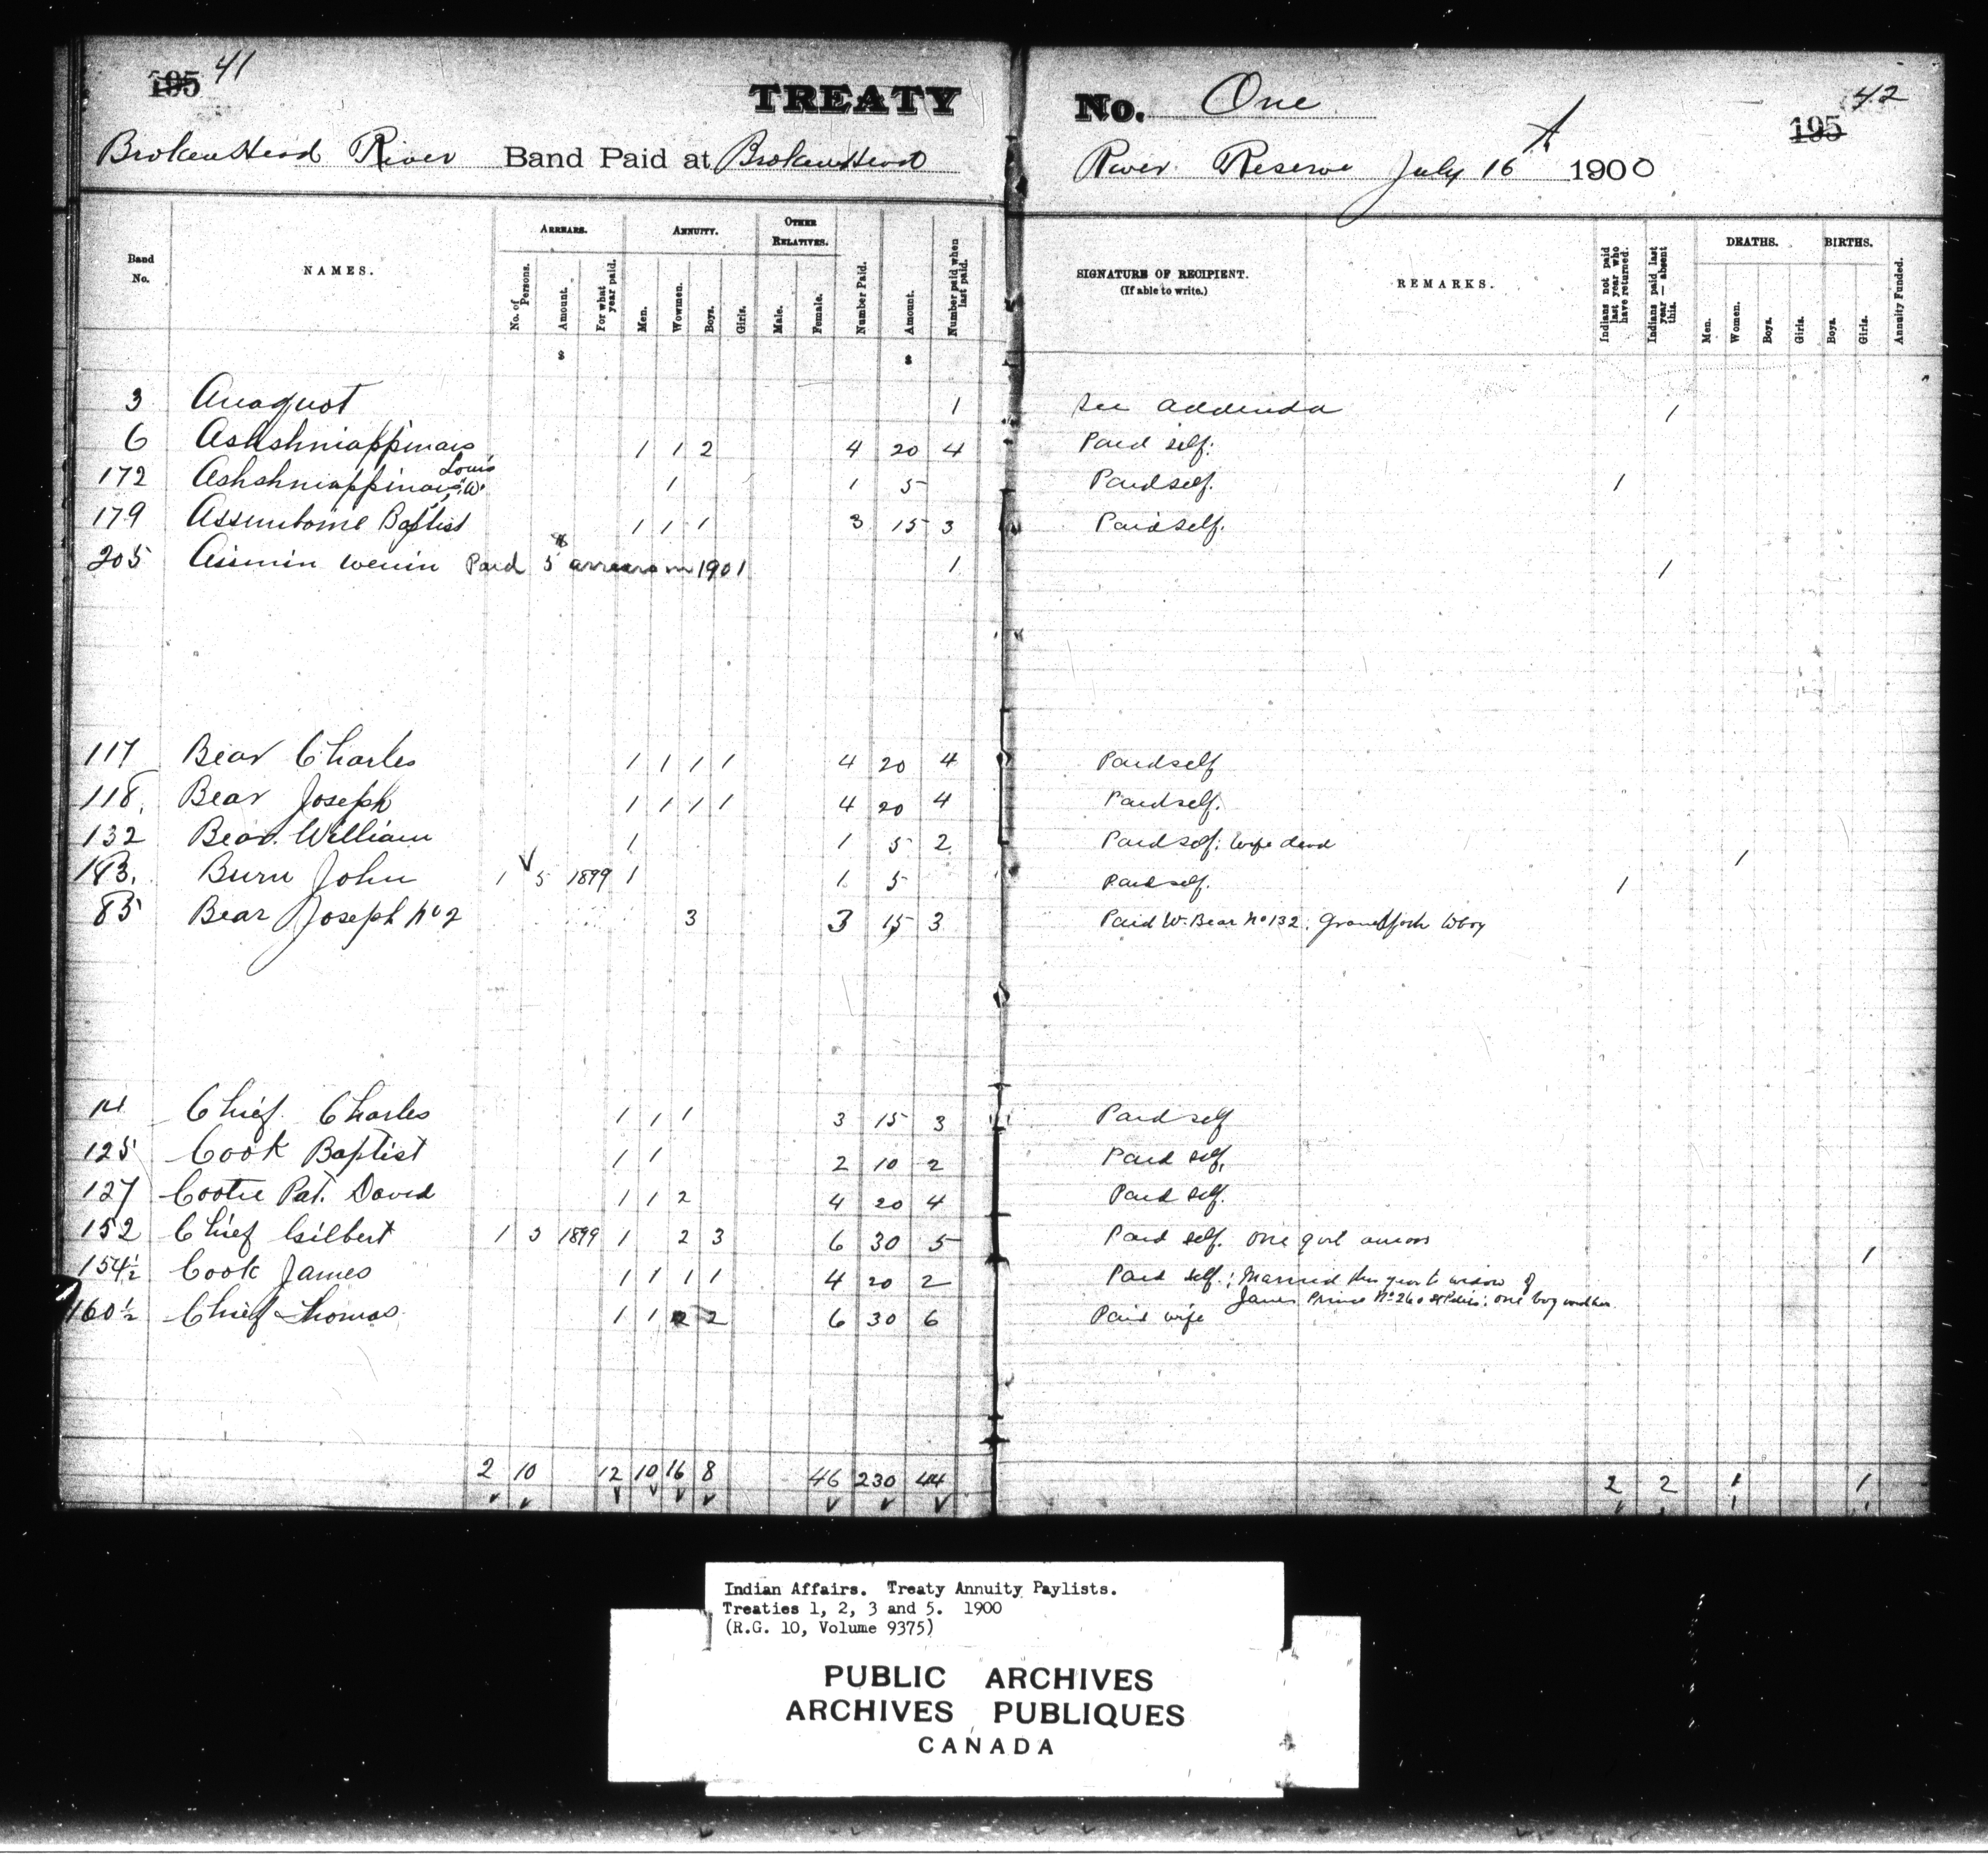 195 41
TREATY No. One
42 195
Broken Head River Band Paid at Broken Head River Reserve July 16th 1900
Band No.
NAMES.
ARREARS.
No. of Persons.
Amount.
For what year paid.
ANNUITY.
Men.
Wowmen.
Boys.
Girls.
OTHER RELATIVES.
Male.
Female.
Number Paid.
Amount.
Number paid when last paid.
SIGNATURE OF RECIPIENT.
(If able to write.)
REMARKS.
Indians not paid last year who have returned.
Indians paid last year — absent this.
DEATHS.
Men.
Women.
Boys.
Girls.
BIRTHS.
Boys.
Girls.
Annuity Funded.
$ $
3 Anaquot 1 see addenda 1
6 Ashshniappinais 1 1 2 4 20 4 Paid self.
172 Ashshniappinais, Louis "W" 1 1 5 Paid self. 1
179 Assiniboine Baptist 1 1 1 3 15 3 Paid self.
205 Assinin wenin Paid $5 arrears in 1901 1 1
117 Bear Charles 1 1 1 1 4 20 4 Paid self
118. Bear Joseph 1 1 1 1 4 20 4 Paid self.
132 Bear. William 1 1 5 2 Paid self: wife dead 1
183. Burn John 1 5 1899 1 1 5 Paid self. 1
85 Bear Joseph No 2 3 3 15 3 Paid W. Bear No 132.
Chief Charles 1 1 1 3 15 3 Paid self
125 Cook Baptist 1 1 2 10 2 Paid self,
127 Cootie Pat. David 1 1 2 4 20 4 Paid self.
152 Chief Gilbert 1 5 1899 1 2 3 6 30 5 Paid self. one girl 1
154½ Cook James 1 1 1 1 4 20 2 Paid self; Married this year to widow of
James Prince No 260 St Peters: one boy
160½ Chief Thomas 1 1 2 2 6 30 6 Paid wife
2 10 12 10 16 8 46 230 44 2 2 1 1
Indian Affairs. Treaty Annuity Paylists.
Treaties 1, 2, 3 and 5. 1900
(R.G. 10, Volume 9375)
PUBLIC ARCHIVES
ARCHIVES PUBLIQUES
CANADA